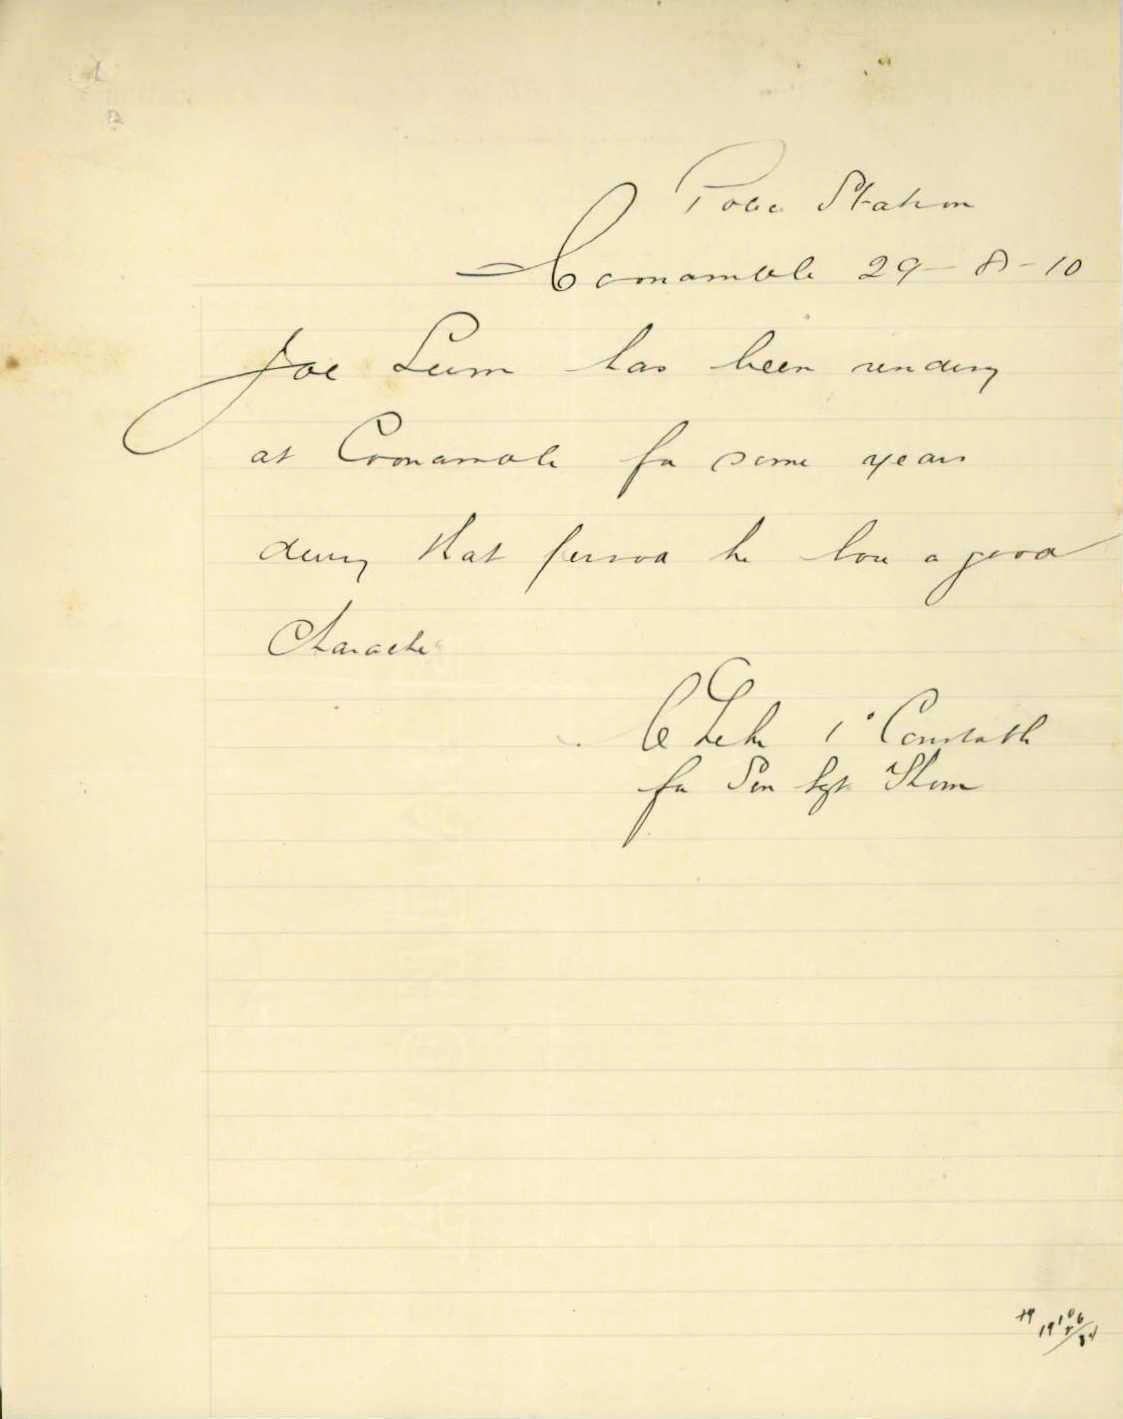 Police Station
Coonamble 29-8-10
Joe Lum has been residing
at Coonamble for some years
during that period he bore a good
Character
1º Constable
for Sen Sgt Thom